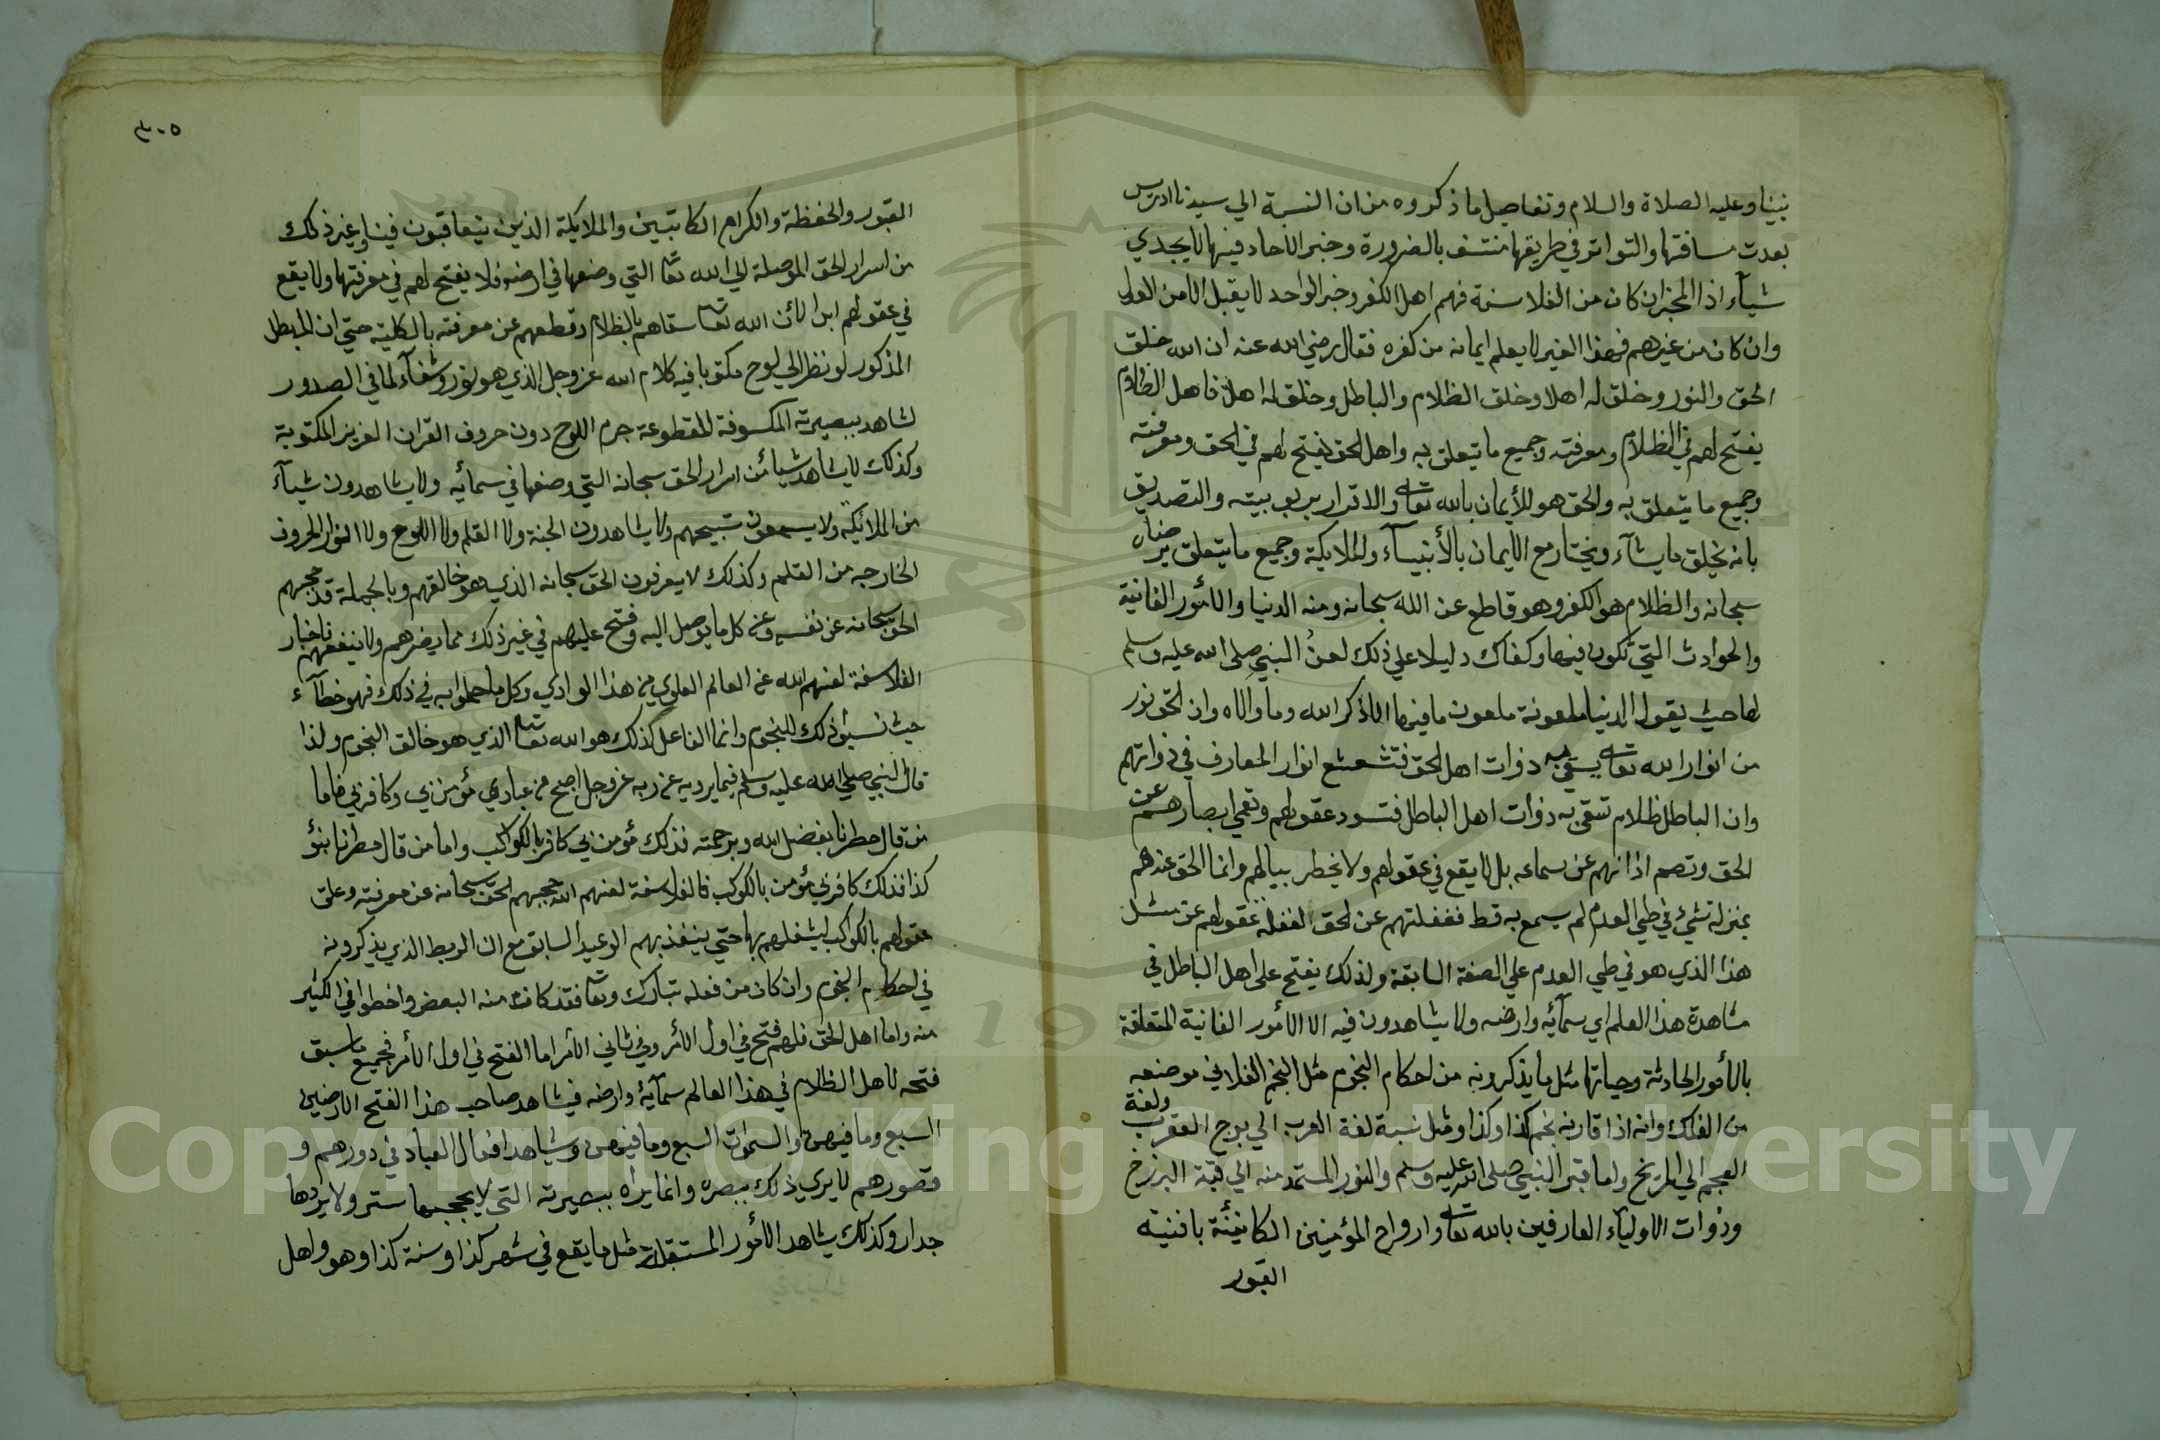 نبينا وعليه الصلاة والسلام وتفاصيل ما ذكروه من ان النسبة الي سيدنا ادريس
بعدت مسافتها والتواتر في طريقها منتف بالضرورة وخبر الاحاد فيها لا يجدي
شيآء اذ المخبر ان كان من الفلاسفة فهم اهل الكفر وخبر الواحد لا يقبل الا من العدل
وان كان من غيرهم فهذا الغير لا يعلم ايمانه من كفره فقال رضي الله عنه ان الله خلق
الحق والنور وخلق له اهلا وخلق الظلام والباطل وخلق له اهلا فاهل الظلام
يفتح لهم في الظلام ومعرفته وجميع ما يتعلق به واهل الحق يفتح لهم في الحق ومعرفته
وجميع ما يتعلق به والحق هو الأيمان بالله تعا والاقرار بربوبيته والتصديق
بانه يخلق ما يشآء ويختار مع الايمان بالأنبيآء والملايكة وجميع ما يتعلق برضاه
سبحانه والظلام هو الكفر وهو قاطع عن الله سبحانه ومنه الدنيا والأمور الفانية
والحوادث التي تكون فيها وكفاك دليلا علي ذلك لعن النبي صلى الله عليه وسلم
لها حيث يقول الدنيا ملعونة ملعون ما فيها الا ذكر الله وما والاه وان الحق نور
من انوار الله تعا يسقي به ذوات اهل الحق فتشعشع انوار المعارف في ذواتهم
وان الباطل ظلام تسقي به ذوات اهل الباطل فتسود عقولهم وتعمي ابصارهم عن
الحق وتصم اذانهم عن سماعه بل لا يقع في عقولهم ولا يخطر ببالهم وانما الحق عندهم
بمنزلة شيء في طي العدم لم يسمع به قط فغفلتهم عن الحق لغفلة عقولهم عن مثل
هذا الذي هو في طي العدم علي الصفة السابقة ولذلك يفتح على اهل الباطل في
مشاهدة هذا العلم اي سمآئه وارضه ولا يشاهدون فيه الا الأمور الفانية المتعلقة
بالأمور الحادثة وحياتها مثل ما يذكرونه من احكام النجوم مثل النجم الفلاني موضعه
من الفلك وانه اذا قارنه نجم كذا وكذا ومثل نسبة لغة العرب الي برج العقرب ولغة
العجم الي المريخ واما قبر النبي صلى الله عليه وسلم والنور المستمد منه الي قبة البرزخ
وذوات الاوليآء العارفين بالله تعا وارواح المؤمنين الكائينة بافنية
القبور
٣٠٥
القبور والحفظة والكرام الكاتبين والملايكة الذين يتعاقبون فينا وغير ذلك
من اسرار الحق الموصلة الي الله تعا التي وضعها في ارضه فلا يفتح لهم في معرفتها ولا يقع
في عقولهم ابدا لأن الله تعا سقاهم بالظلام وقطعهم عن معرفته بالكلية حتي ان المبطل
المذكور لو نظر الي لوح مكتوبا فيه كلام الله عز وجل الذي هو نور وشفآء لما في الصدور
لشاهد ببصيرته المكسوفة المقطوعة جرم اللوح دون حروف القران العزيز المكتوبة
وكذلك لا يشاهد شيا من اسرار الحق سبحانه التي وضعها في سمائه ولا يشاهدون شيآء
من الملائكة ولا يسمعون تسبيحهم ولا يشاهدون الجنة ولا القلم ولا اللوح ولا انوار الحروف
الخارجه من القلم وكذلك لا يعرفون الحق سبحانه الذي هو خالقهم وبالجملة قد حجبهم
الحق سبحانه عن نفسه وعن كل ما يوصل اليه وفتح عليهم في غير ذلك مما يضرهم ولا ينفعهم فاخبار
الفلاسفة لعنهم الله عن العالم العلوي من هذا الوادي وكل ما حكوا به في ذلك فهو خطآء
حيث نسبوا ذلك للنجوم وانما الفاعل لذلك هو الله تعا الذي هو خالق النجوم ولذا
قال النبي صلي الله عليه وسلم فيما يرويه عن ربه عز وجل اصبح من عبادي مؤمن بي وكافر بي فاما
من قال مطرنا بفضل الله وبرحمته فذلك مؤمن بي كافر بالكوكب واما من قال مطرنا بنؤ
كذا فذلك كافر بي مؤمن بالكوكب فالفلاسفة لعنهم الله حجبهم الحق سبحانه عن معرفته وعلق
عقولهم بالكواكب ليشغلهم بها حتي ينفذ بهم الوعيد السابق مع ان الربط الذي يذكرونه
في احكام النجوم وان كان من فعله تبارك وتعا فقد كان منه البعض واخطوا في الكثير
منه واما اهل الحق فلهم فتح في اول الأمر وفي ثاني الأمر اما الفتح في اول الأمر فجميع ما سبق
فتحه لاهل الظلام في هذا العالم سمآئه وارضه فيشاهد صاحب هذا الفتح الارضين
السبع وما فيهن والسموات السبع وما فيهن ويشاهد افعال العباد في دورهم و
قصورهم لا يري ذلك ببصره وانما يراه ببصيرته التي لا يحجبها ستر ولا يردها
جدار وكذلك يشاهد الأمور المستقبلة مثل ما يقع في شهر كذا وسنة كذا وهو واهل
1957
Copyright © King Saud University